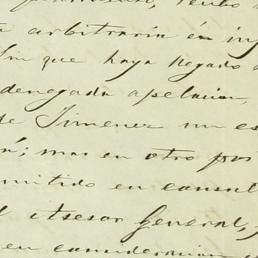 arbitraria é in
sin que haya llegado
denegada apelacion,
de Jimenez un es
; mas en otro pos
mitido en consul
l Asesor General,
en consideracion